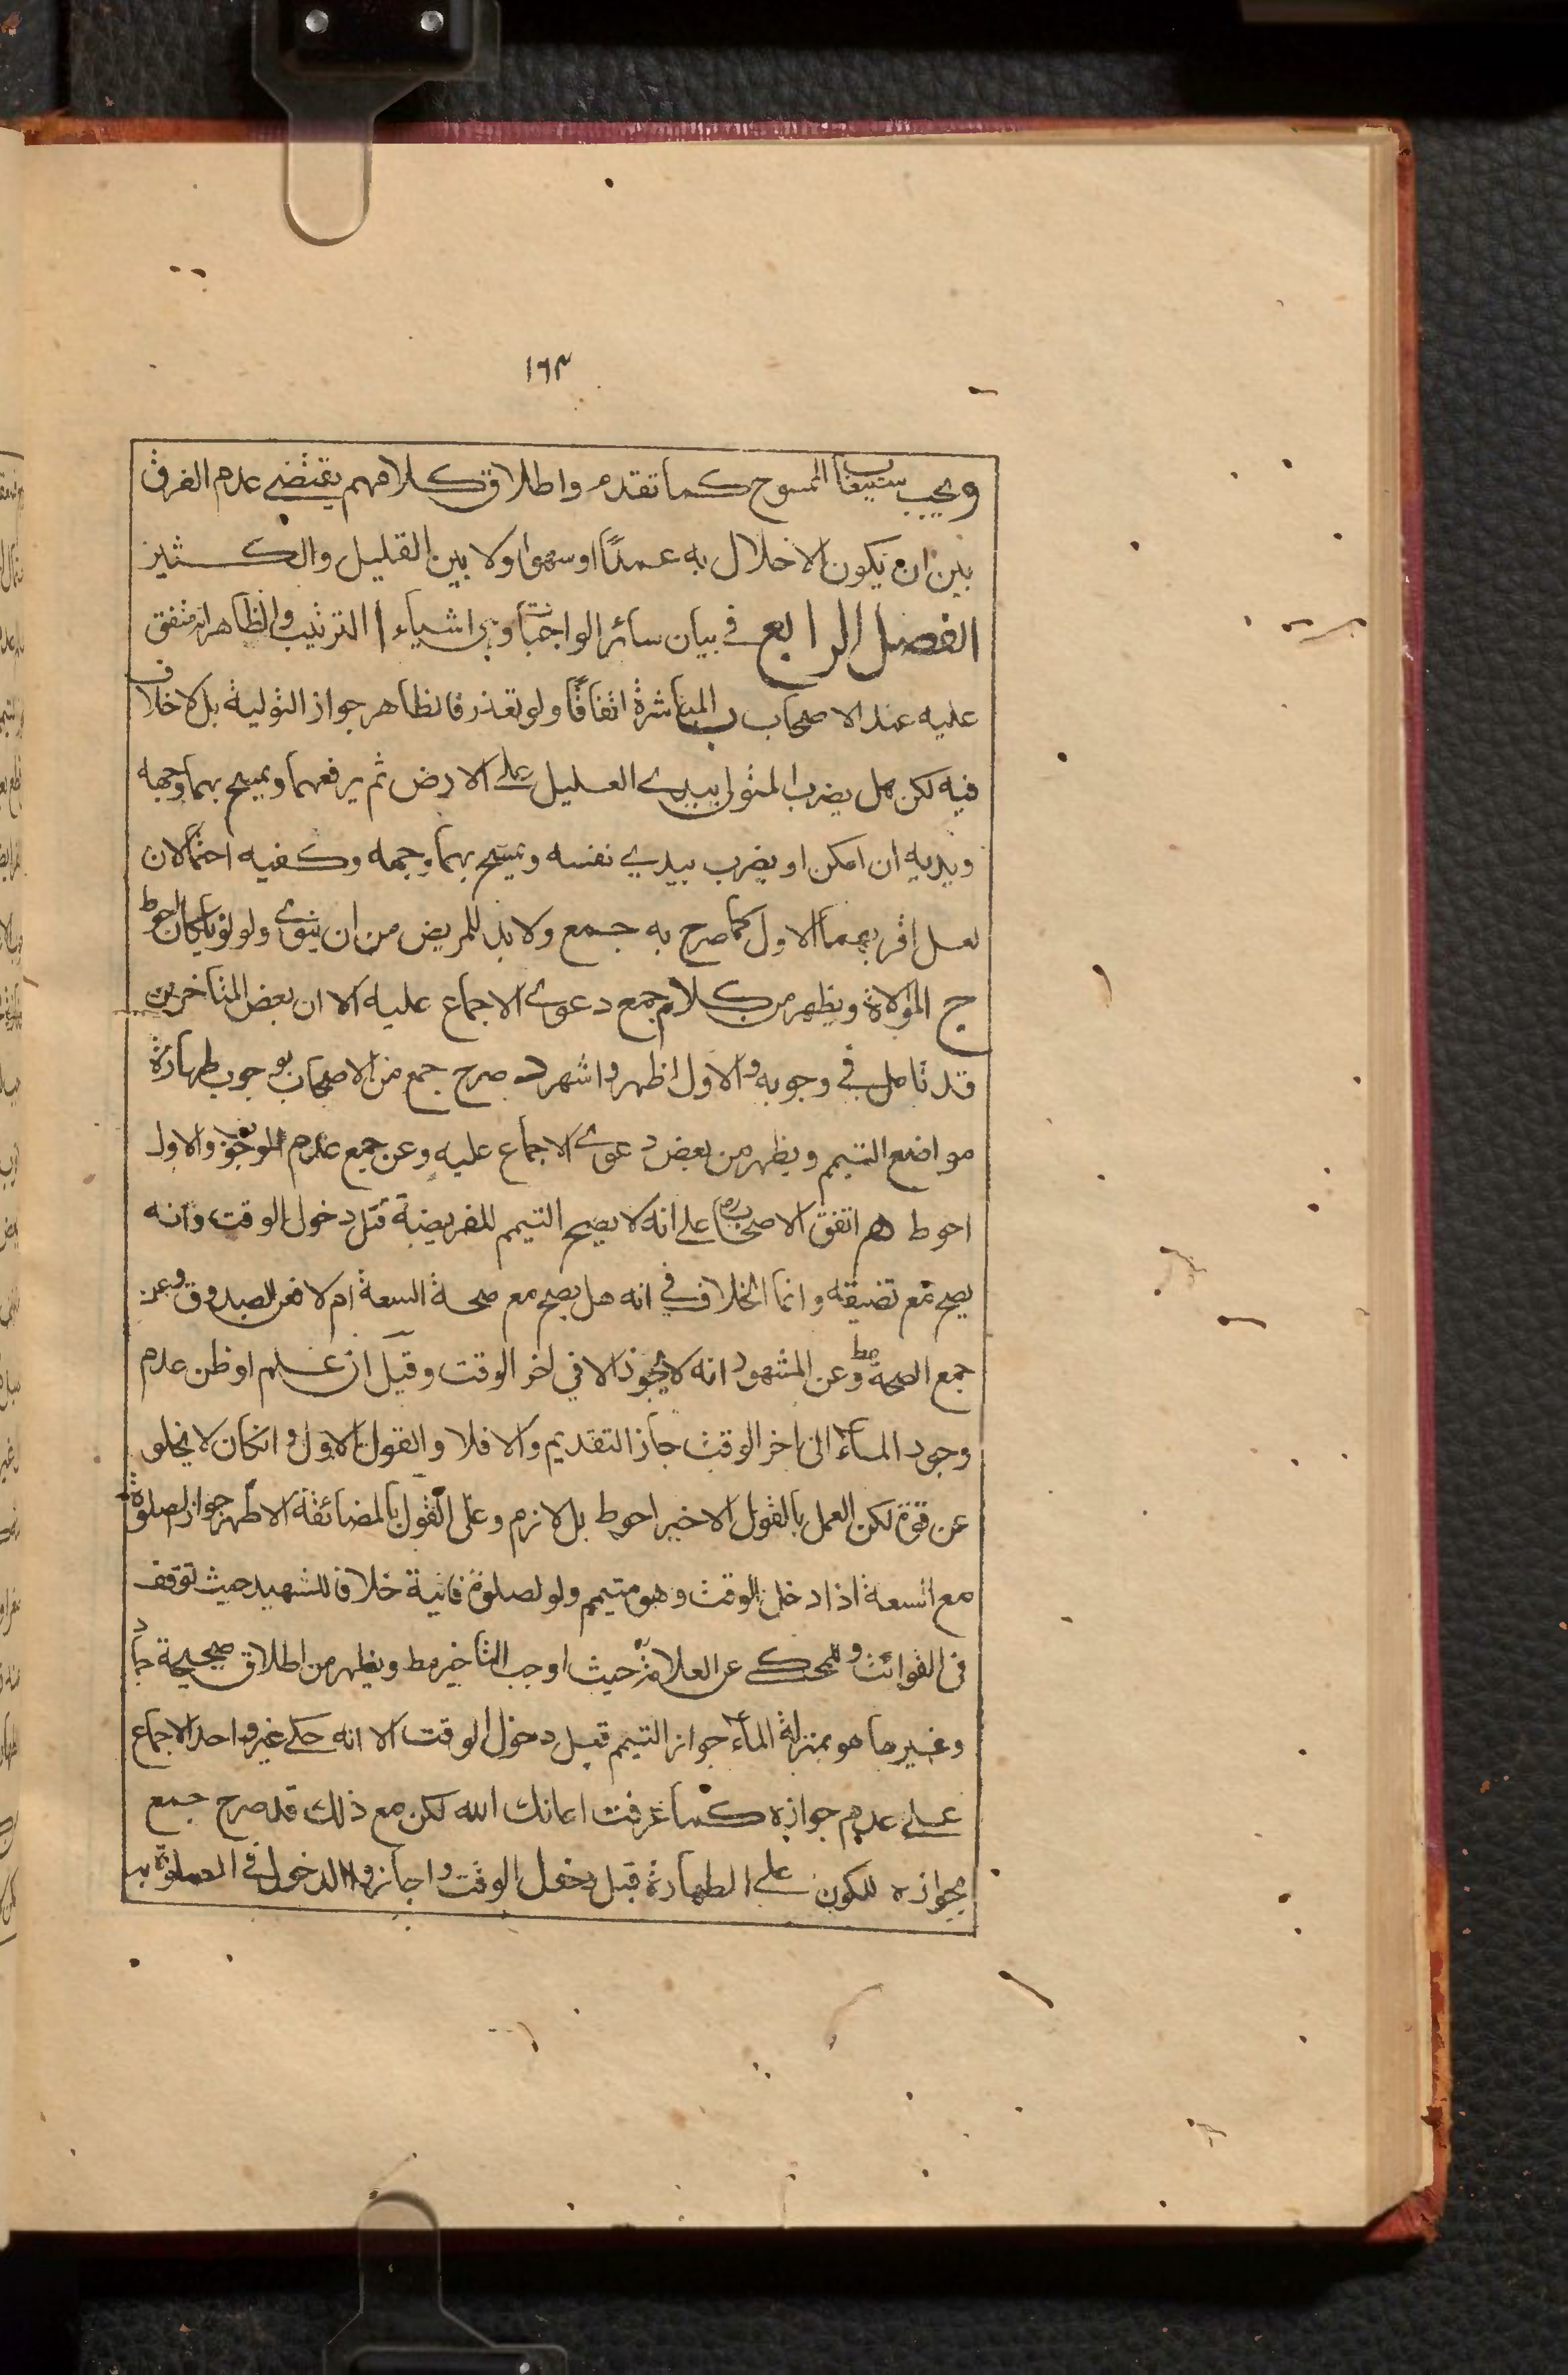 ١٦٣
ويجب ستيعاب الممسوح كما تقدم واطلاق كلامهم يقتضي عدم الفرق
بين ان يكون الاخلال به عمدًا او سهوا ولا بين القليل والكثير
الفصل الرابع في بيان سائر الواجبات وهي اشياء ا الترتيب والظاهر انه متفق
عليه عند الاصحاب ب المباشرة اتفاقًا ولو تعذر فالظاهر جواز التولية بل لا خلاف
فيه لكن هل يضرب المتولي بيدي العليل على الارض ثم يرفعهما ويمسح بهما وجهه
ويديه ان امكن او يضرب بيدي نفسه ويمسح بهما وجهه وكفيه احتمالان
لعل اقربهما الاول كما صرح به جمع ولا بد للمريض من ان ينوي ولو نويا كان احوط
ج الموالاة ويظهر من كلام جمع دعوى الاجماع عليه الا ان بعض المتاخرين
قد تامل في وجوبه والاول اظهر واشهر د صرح جمع من الاصحاب بوجوب طهارة
مواضع التيمم ويظهر من بعض دعوى الاجماع عليه وعن جمع عدم الوجوب والاول
احوط هـ اتفق الاصحاب ره على انه لا يصح التيمم للفريضة قبل دخول الوقت وانه
يصح مع تضيقه وانما الخلاف في انه هل يصح مع صحة السعة ام لا فعن الصدوق وعن
جمع الصحة مط وعن المشهور انه لا يجوز الا في اخر الوقت وقيل ان علم او ظن عدم
وجود الماء الى اخر الوقت جاز التقديم والا فلا والقول الاول وانكان لا يخلو
عن قوة لكن العمل بالقول الاخير احوط بل لازم وعلى القول بالمضائقة الاظهر جواز الصلوة
مع السعة اذا دخل الوقت وهو متيمم ولو لصلوة فائتة خلافا للشهيد حيث توقف
في الفوائت وللمحكي عن العلامة حيث اوجب التاخير مط ويظهر من اطلاق صحيحة حماد
وغيرها هو بمنزلة الماء جواز التيمم قبل دخول الوقت الا انه حكى غير واحد الاجماع
على عدم جوازه كما عرفت اعانك الله لكن مع ذلك قد صرح جمع
بجوازه للكون على الطهارة قبل دخول الوقت واجازوا الدخول في الصلوة به